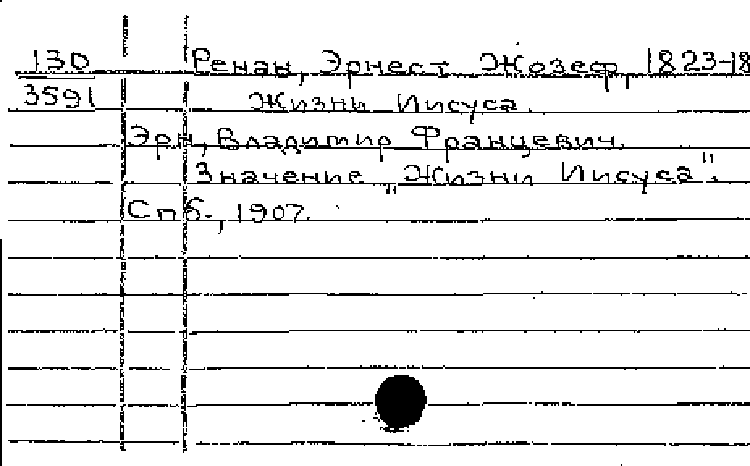 130 Ренан, Эрнест Жозеф, 1823-18
3591 Жизни Иисуса.
Эрн, Владимир Францевич.
Значение „Жизни Иисуса".
Спб., 1907.